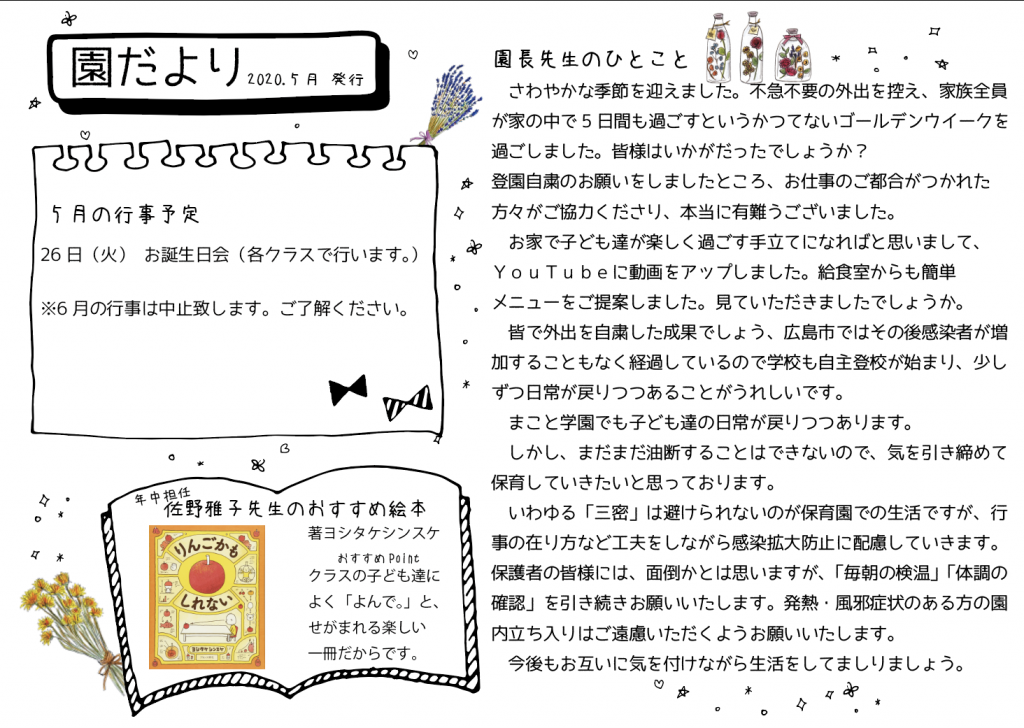 園だより 2020.5月 発行
5月の行事予定
26日(火) お誕生日会(各クラスで行います。)
※6月の行事は中止致します。ご了解ください。
年中担任
佐野雅子先生のおすすめ絵本
りんごかも
しれない
ヨシタケシンスケ
著ヨシタケシンスケ
おすすめPoint
クラスの子ども達に
よく「よんで。」と、
せがまれる楽しい
一冊だからです。
園長先生のひとこと
さわやかな季節を迎えました。不急不要の外出を控え、家族全員
が家の中で5日間も過ごすというかつてないゴールデンウイークを
過ごしました。皆様はいかがだったでしょうか?
登園自粛のお願いをしましたところ、お仕事のご都合がつかれた
方々がご協力くださり、本当に有難うございました。
お家で子ども達が楽しく過ごす手立てになればと思いまして、
YouTubeに動画をアップしました。給食室からも簡単
メニューをご提案しました。見ていただきましたでしょうか。
皆で外出を自粛した成果でしょう、広島市ではその後感染者が増
加することもなく経過しているので学校も自主登校が始まり、少し
ずつ日常が戻りつつあることがうれしいです。
まこと学園でも子ども達の日常が戻りつつあります。
しかし、まだまだ油断することはできないので、気を引き締めて
保育していきたいと思っております。
いわゆる「三密」は避けられないのが保育園での生活ですが、行
事の在り方など工夫をしながら感染拡大防止に配慮していきます。
保護者の皆様には、面倒かとは思いますが、「毎朝の検温」「体調の
確認」を引き続きお願いいたします。発熱・風邪症状のある方の園
内立ち入りはご遠慮いただくようお願いいたします。
今後もお互いに気を付けながら生活をしてましりましょう。